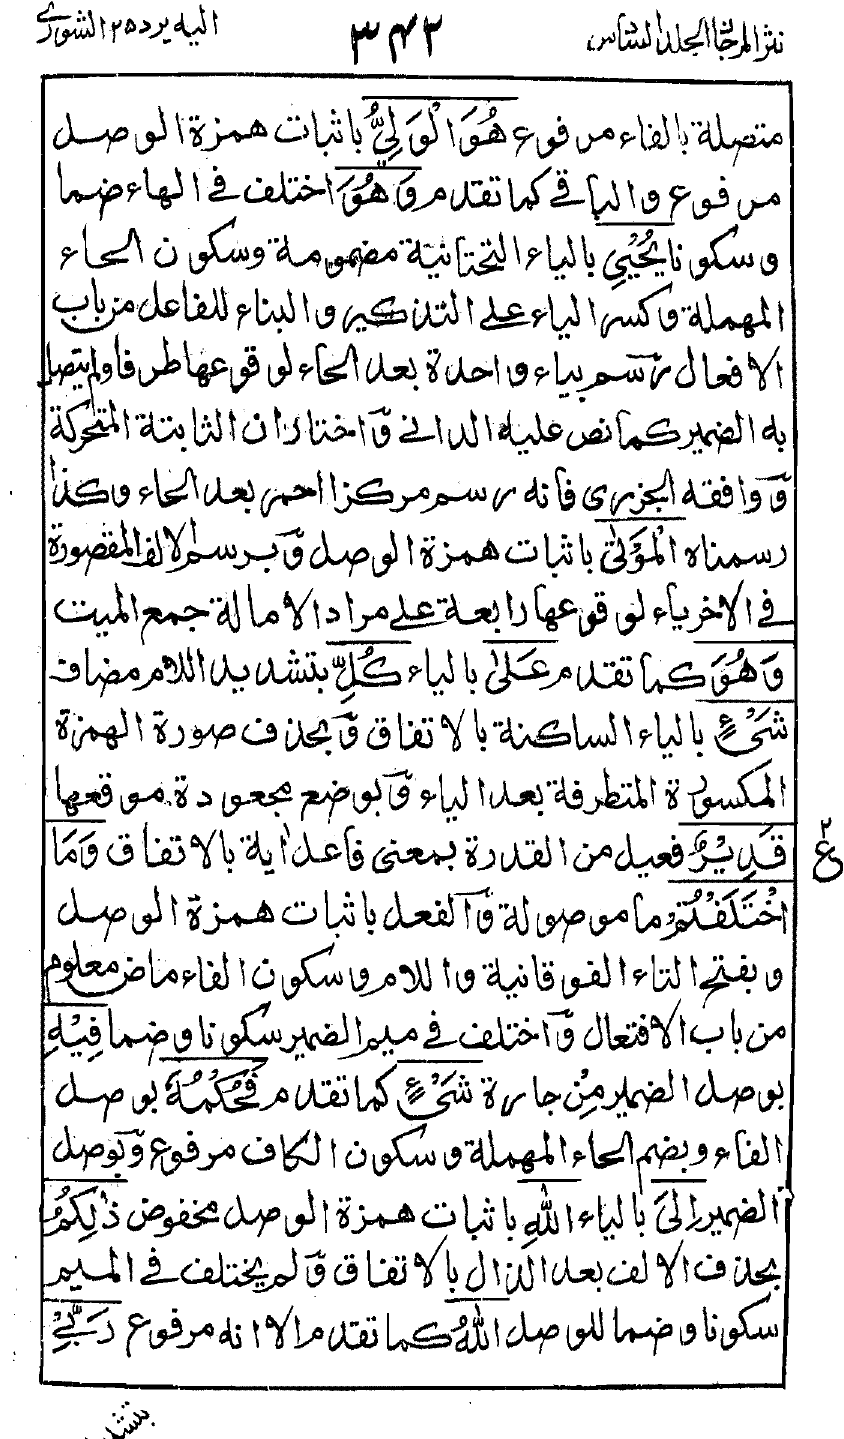 نثر المرجان المجلد السادس
٣٤٢
اليه يرد ٢٥ الشورى
متصلة بالفاء مرفوع هُوَ الْوَلِيُّ باثبات همزة الوصل
مرفوع والباقي كما تقدم وَهُوَ اختلف في الهاء ضما
وسكونا يُحْيِي بالياء التحتانية مضمومة وسكون الحاء
المهملة وكسر الياء على التذكير والبناء للفاعل من باب
الافعال رسم بياء واحدة بعد الحاء لوقوعها طرفا ولم يتصل
به الضمير كما نص عليه الداني واختار ان الثابتة المتحركة
ووافقه الجزرى فانه رسم مركزا احمر بعد الحاء وكذا
رسمناه الْمَوْتٰى باثبات همزة الوصل وبرسم الالف المقصورة
في الاخر ياء لوقوعها رابعة على مراد الامالة جمع الميت
وَهُوَ كما تقدم عَلٰى بالياء كُلِّ بتشديد اللام مضاف
شَيْءٍ بالياء الساكنة بالاتفاق وبحذف صورة الهمزة
المكسورة المتطرفة بعد الياء وبوضع مجعودة موقعها
قَدِيْرٌ فعيل من القدرة بمعنى فاعل اٰية بالاتفاق وَمَا
ع ٢
اخْتَلَفْتُمْ ما موصولة والفعل باثبات همزة الوصل
وبفتح التاء الفوقانية واللام وسكون الفاء ماض معلوم
من باب الافتعال واختلف في ميم الضمير سكونا وضما فِيْهِ
بوصل الضمير مِنْ جارة شَيْءٍ كما تقدم فَحُكْمُهٗ بوصل
الفاء وبضم الحاء المهملة وسكون الكاف مرفوع وبوصل
الضمير اِلَى بالياء اللّٰهِ باثبات همزة الوصل مخفوض ذٰلِكُمُ
بحذف الالف بعد الذال بالاتفاق ولم يختلف في الميم
سكونا وضما للوصل اللّٰهُ كما تقدم الا انه مرفوع رَبِّيْ